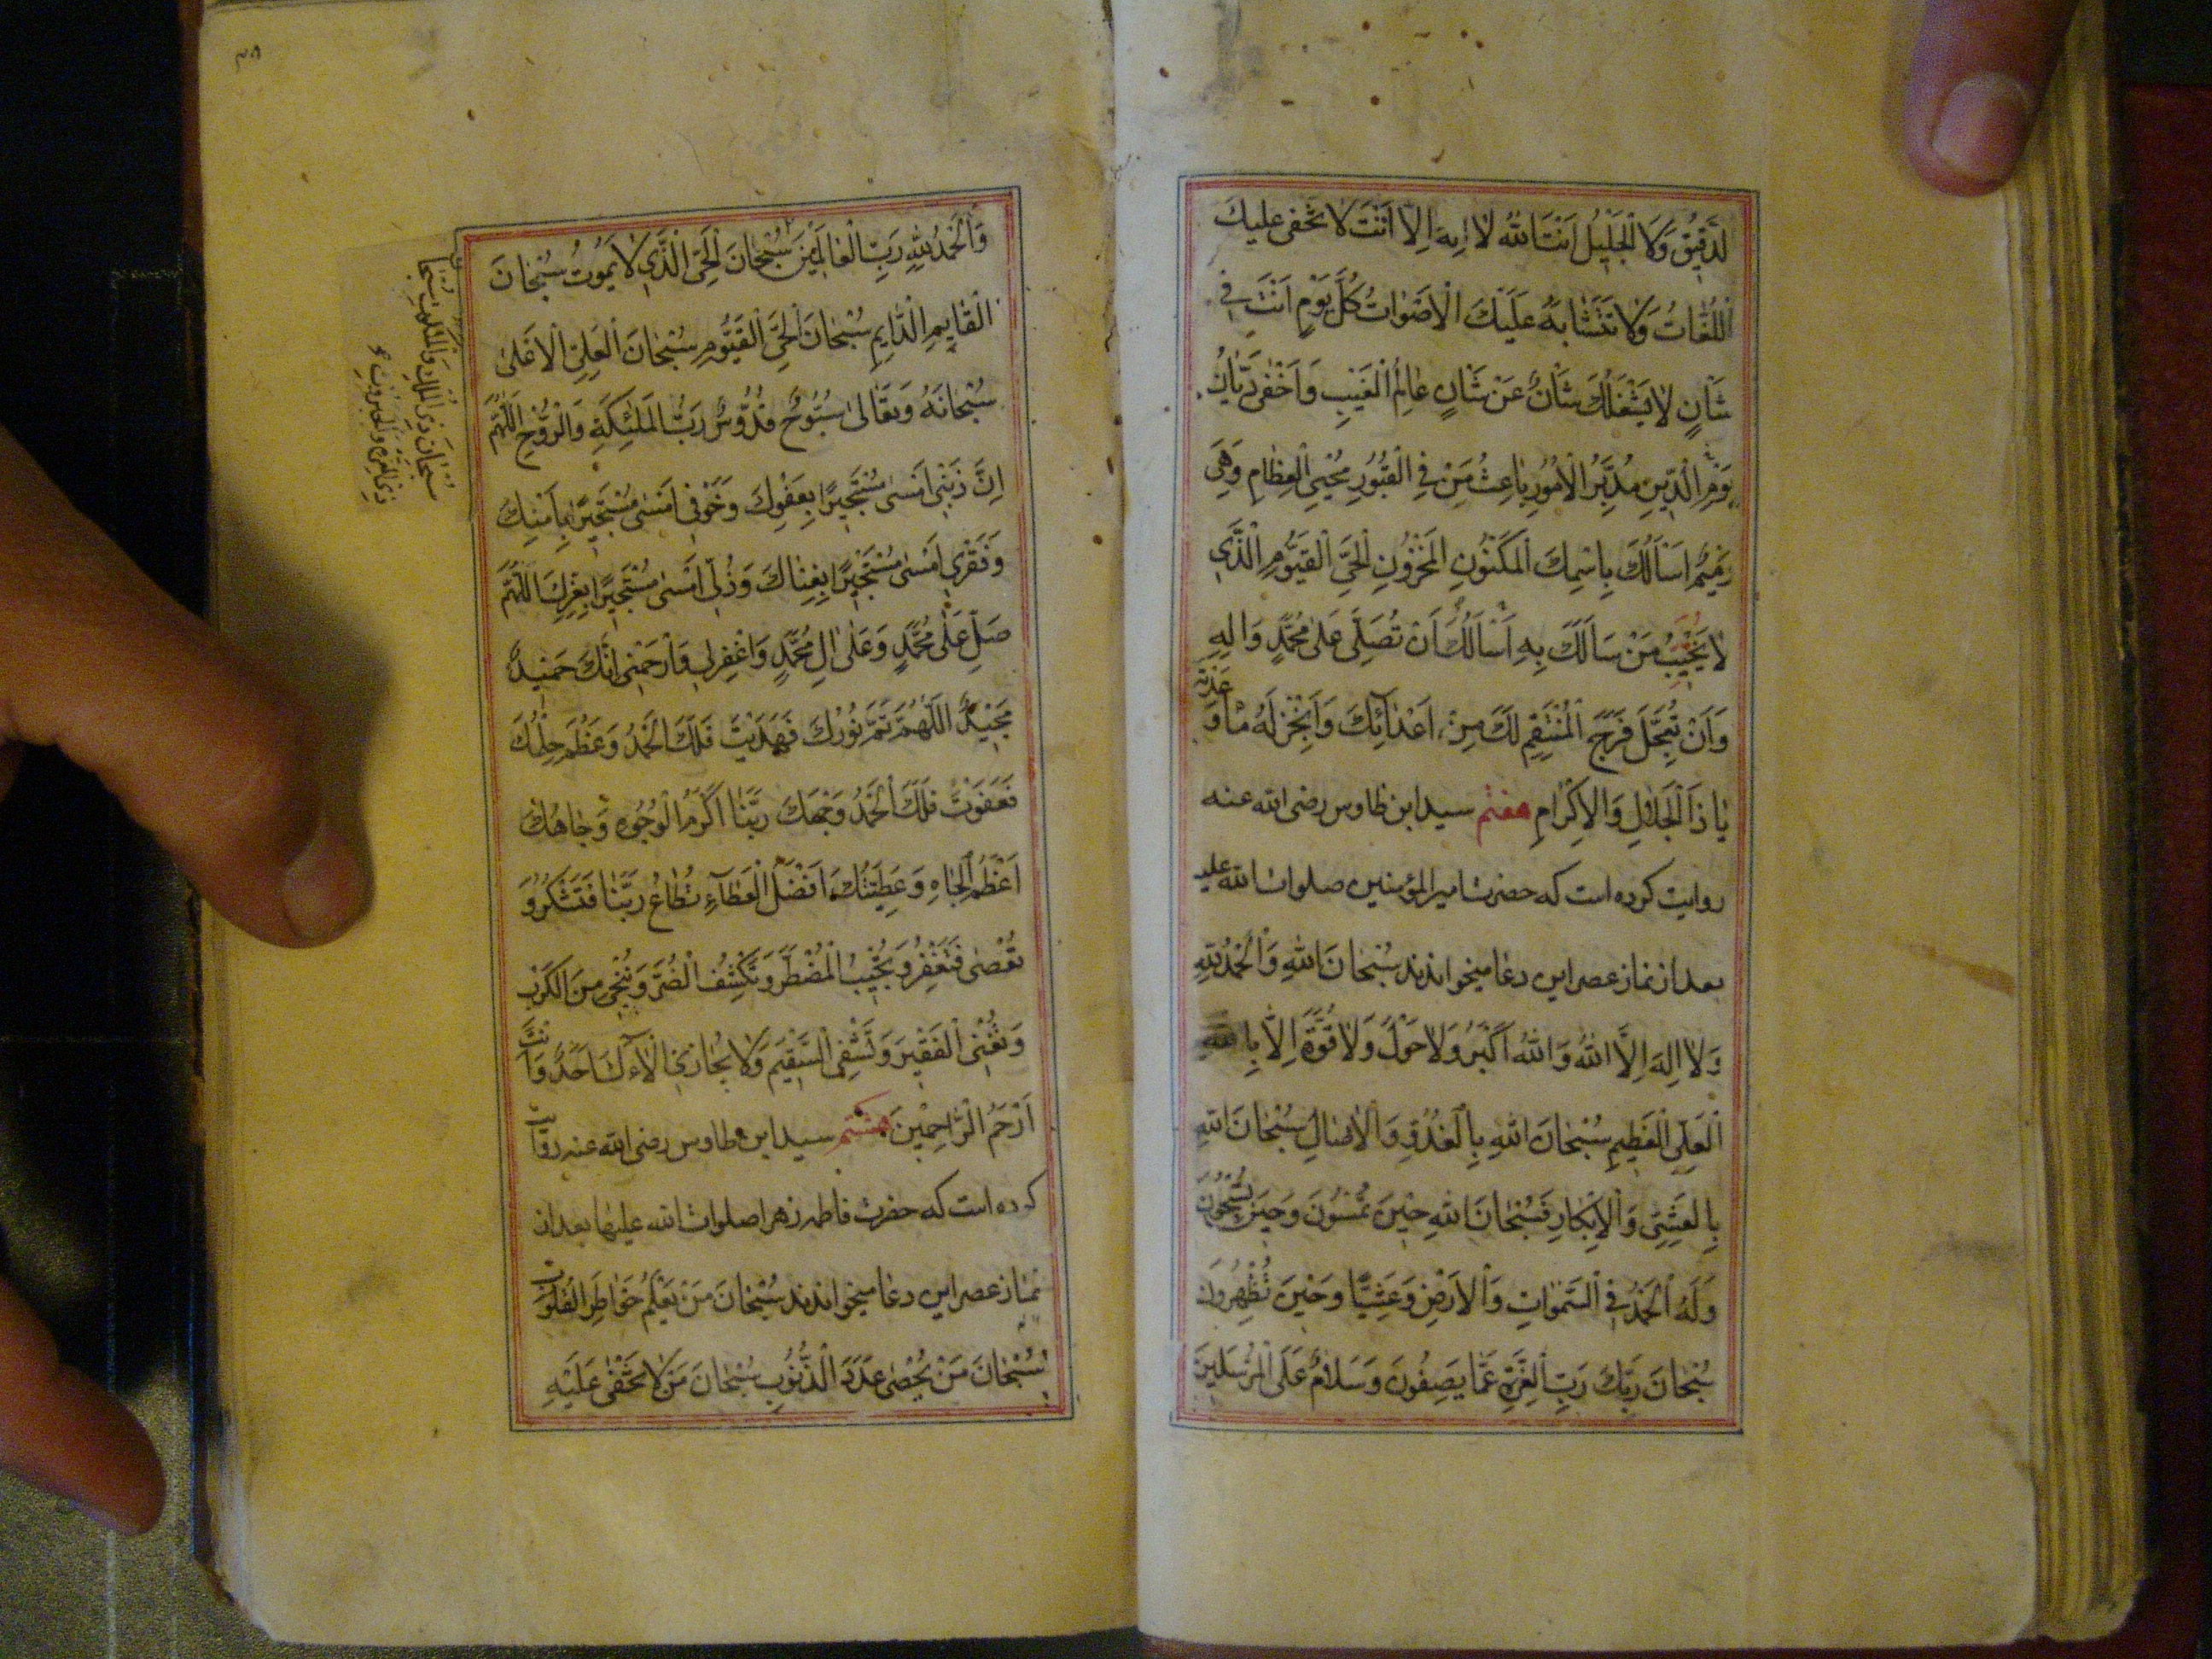 لدَّقِيقُ وَلَا الْجَلِيلُ اَنْتَ اللّٰهُ لَا اِلٰهَ اِلَّا اَنْتَ لَا تَخْفٰى عَلَيْكَ
اللُّغَاتُ وَلَا تَتَشَابَهُ عَلَيْكَ الْاَصْوَاتُ كُلَّ يَوْمٍ اَنْتَ فِي
شَأْنٍ لَا يَشْغَلُكَ شَأْنٌ عَنْ شَأْنٍ عَالِمُ الْغَيْبِ وَاَخْفٰى دَيَّانُ
يَوْمِ الدِّينِ مُدَبِّرُ الْاُمُورِ بَاعِثُ مَنْ فِي الْقُبُورِ مُحْيِي الْعِظَامِ وَهِيَ
رَمِيمٌ اَسْاَلُكَ بِاسْمِكَ الْمَكْنُونِ الْمَخْزُونِ الْحَيِّ الْقَيُّومِ الَّذِي
لَا يَخِيبُ مَنْ سَاَلَكَ بِهِ اَسْاَلُكَ اَنْ تُصَلِّيَ عَلٰى مُحَمَّدٍ وَاٰلِهِ
وَاَنْ تُعَجِّلَ فَرَجَ الْمُنْتَقِمِ لَكَ مِنْ اَعْدَائِكَ وَاَنْجِزْ لَهُ مَا وَعَدْتَهُ
يَا ذَا الْجَلَالِ وَالْاِكْرَامِ هفتم سيد ابن طاوس رضى الله عنه
روايت كرده است كه حضرت امير المؤمنين صلوات الله عليه
بعد از نماز عصر اين دعا ميخواندند سُبْحَانَ اللّٰهِ وَالْحَمْدُ لِلّٰهِ
وَلَا اِلٰهَ اِلَّا اللّٰهُ وَاللّٰهُ اَكْبَرُ وَلَا حَوْلَ وَلَا قُوَّةَ اِلَّا بِاللّٰهِ
الْعَلِيِّ الْعَظِيمِ سُبْحَانَ اللّٰهِ بِالْغُدُوِّ وَالْاٰصَالِ سُبْحَانَ اللّٰهِ
بِالْعَشِيِّ وَالْاِبْكَارِ فَسُبْحَانَ اللّٰهِ حِينَ تُمْسُونَ وَحِينَ تُصْبِحُونَ
وَلَهُ الْحَمْدُ فِي السَّمٰوَاتِ وَالْاَرْضِ وَعَشِيًّا وَحِينَ تُظْهِرُونَ
سُبْحَانَ رَبِّكَ رَبِّ الْعِزَّةِ عَمَّا يَصِفُونَ وَسَلَامٌ عَلَى الْمُرْسَلِينَ
وَالْحَمْدُ لِلّٰهِ رَبِّ الْعَالَمِينَ سُبْحَانَ الْحَيِّ الَّذِي لَا يَمُوتُ سُبْحَانَ
الْقَايِمِ الدَّايِمِ سُبْحَانَ الْحَيِّ الْقَيُّومِ سُبْحَانَ الْعَلِيِّ الْاَعْلٰى
سُبْحَانَهُ وَتَعَالٰى سُبُّوحٌ قُدُّوسٌ رَبُّ الْمَلٰئِكَةِ وَالرُّوحِ اَللّٰهُمَّ
اِنَّ ذَنْبِي اَمْسٰى مُسْتَجِيرًا بِعَفْوِكَ وَخَوْفِي اَمْسٰى مُسْتَجِيرًا بِاَمْنِكَ
وَفَقْرِي اَمْسٰى مُسْتَجِيرًا بِغِنَاكَ وَذُلِّي اَمْسٰى مُسْتَجِيرًا بِعِزِّكَ اَللّٰهُمَّ
صَلِّ عَلٰى مُحَمَّدٍ وَعَلٰى اٰلِ مُحَمَّدٍ وَاغْفِرْ لِي وَارْحَمْنِي اِنَّكَ حَمِيدٌ
مَجِيدٌ اَللّٰهُمَّ تَمَّ نُورُكَ فَهَدَيْتَ فَلَكَ الْحَمْدُ وَعَظُمَ حِلْمُكَ
فَعَفَوْتَ فَلَكَ الْحَمْدُ وَجْهُكَ رَبَّنَا اَكْرَمُ الْوُجُوهِ وَجَاهُكَ
اَعْظَمُ الْجَاهِ وَعَطِيَّتُكَ اَفْضَلُ الْعَطَاءِ تُطَاعُ رَبَّنَا فَتَشْكُرُ وَ
تُعْصٰى فَتَغْفِرُ وَتُجِيبُ الْمُضْطَرَّ وَتَكْشِفُ الضُّرَّ وَتُنْجِي مِنَ الْكَرْبِ
وَتُغْنِي الْفَقِيرَ وَتَشْفِي السَّقِيمَ وَلَا يُجَازِي اٰلَاءَكَ اَحَدٌ وَاَنْتَ
اَرْحَمُ الرَّاحِمِينَ هشتم سيد ابن طاوس رضى الله عنه روايت
كرده است كه حضرت فاطمه زهرا صلوات الله عليها بعد از
نماز عصر اين دعا ميخواندند سُبْحَانَ مَنْ يَعْلَمُ خَوَاطِرَ الْقُلُوبِ
سُبْحَانَ مَنْ يُحْصِي عَدَدَ الذُّنُوبِ سُبْحَانَ مَنْ لَا تَخْفٰى عَلَيْهِ
سُبْحَانَ ذِي الْمُلْكِ وَالْمَلَكُوتِ سُبْحَانَ
ذِي الْعِزَّةِ وَالْجَبَرُوتِ